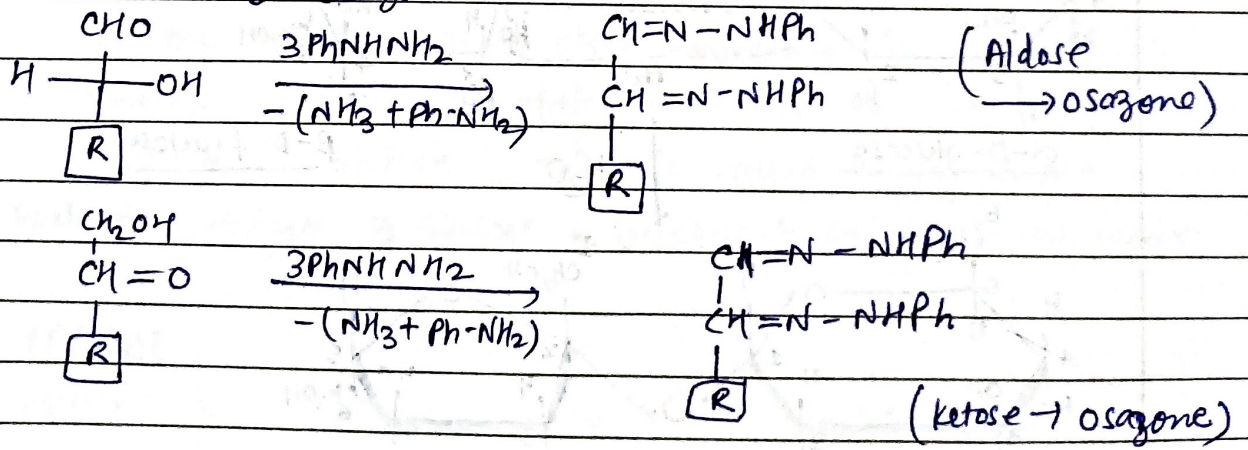 CHO
H OH
R
3 PhNHNH2
-(NH3 + Ph-NH2)
CH=N-NHPh
CH=N-NHPh
R
(Aldose
→ osazone)
CH2OH
CH=O
R
3PhNHNH2
-(NH3+ Ph-NH2)
CH=N-NHPh
CH=N-NHPh
R
(ketose → osazone)